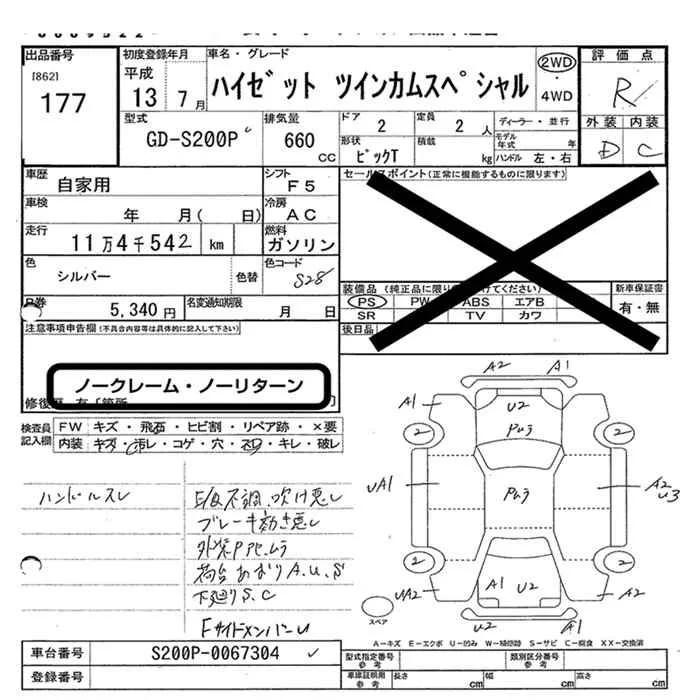 出品番号
[862]
177
初度登録年月
平成
13 7月
車名・グレード
ハイゼット ツインカムスペシャル
2WD
・
4WD
評価点
R
外装 内装
D C
型式
GD-S200P
排気量
660
CC
ドア
2
定員
2 人
ディーラー・並行
形状
ピックT
積載
kg
モデル年式 年
ハンドル 左・右
車歴
自家用
シフト
F5
車検
年 月( 日)
冷房
AC
走行
11万4千542 km
燃料
ガソリン
色
シルバー
色替
色コード
S28
5,340円
名変通知期限
月 日
セールスポイント(正常に機能するものに限ります)
装備品
PS PW ABS エアB
SR TV カワ
新車保証書
有・無
後日品
注意事項申告欄(不具合内容等は具体的に記入して下さい)
ノークレーム・ノーリターン
検査員記入欄
FW キズ・飛石・ヒビ割・リペア跡・×要
内装 キズ・汚レ・コゲ・穴・スレ・キレ・破レ
ハンドルスレ
E/g不調、吹け悪し
ブレーキ効き悪し
外装Pアセ、ムラ
荷台あおりA.U.S
下廻りS.C
FサイドメンバーU
A2 A1
A1 U2
Pムラ
2 2
UA1 Pムラ A2
U3
2 2
UA2 A1 U2 A2
U2 A1
スペア
A-キズ E-エクボ U-凹み W-補修跡 S-サビ C-腐食 XX-交換済
車台番号
S200P-0067304
登録番号
型式指定番号
参考
類別区分番号
参考
車庫証明用
参考
長さ cm
幅 cm
高さ cm